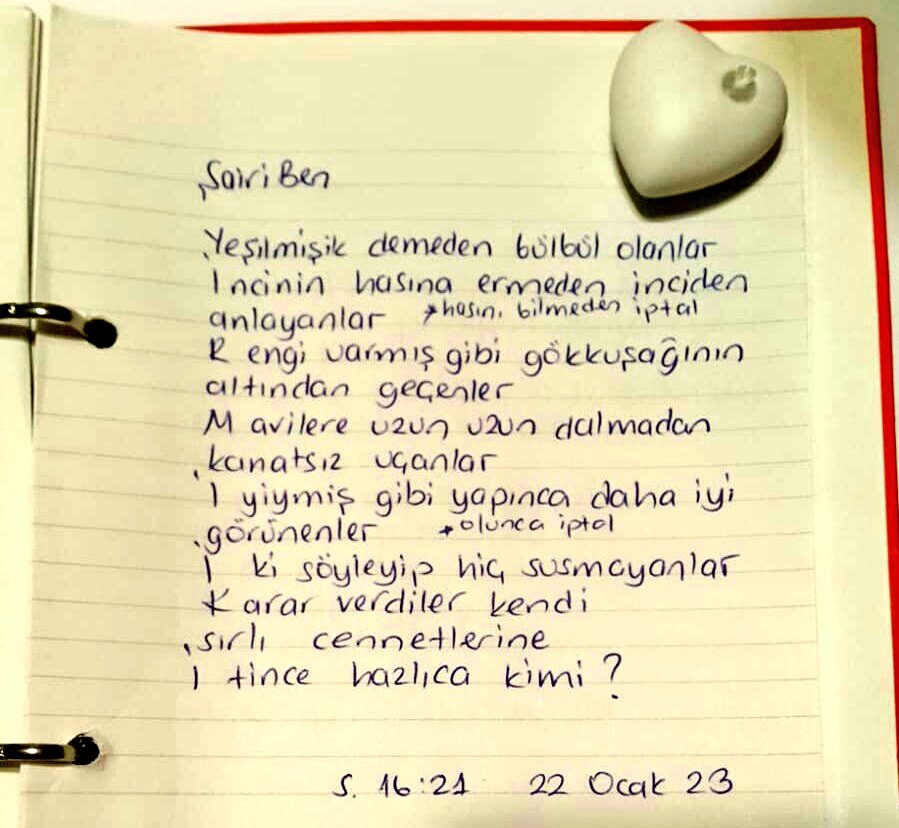 Şairi Ben
Yeşilmişik demeden bülbül olanlar
İncinin hasına ermeden inciden
anlayanlar *hasını bilmeden iptal
R engi varmış gibi gökkuşağının
altından geçenler
M avilere uzun uzun dalmadan
kanatsız uçanlar
I yiymiş gibi yapınca daha iyi
görünenler *olunca iptal
I ki söyleyip hiç susmayanlar
K arar verdiler kendi
sırlı cennetlerine
I tince hazlıca kimi?
S. 16:21 22 Ocak 23